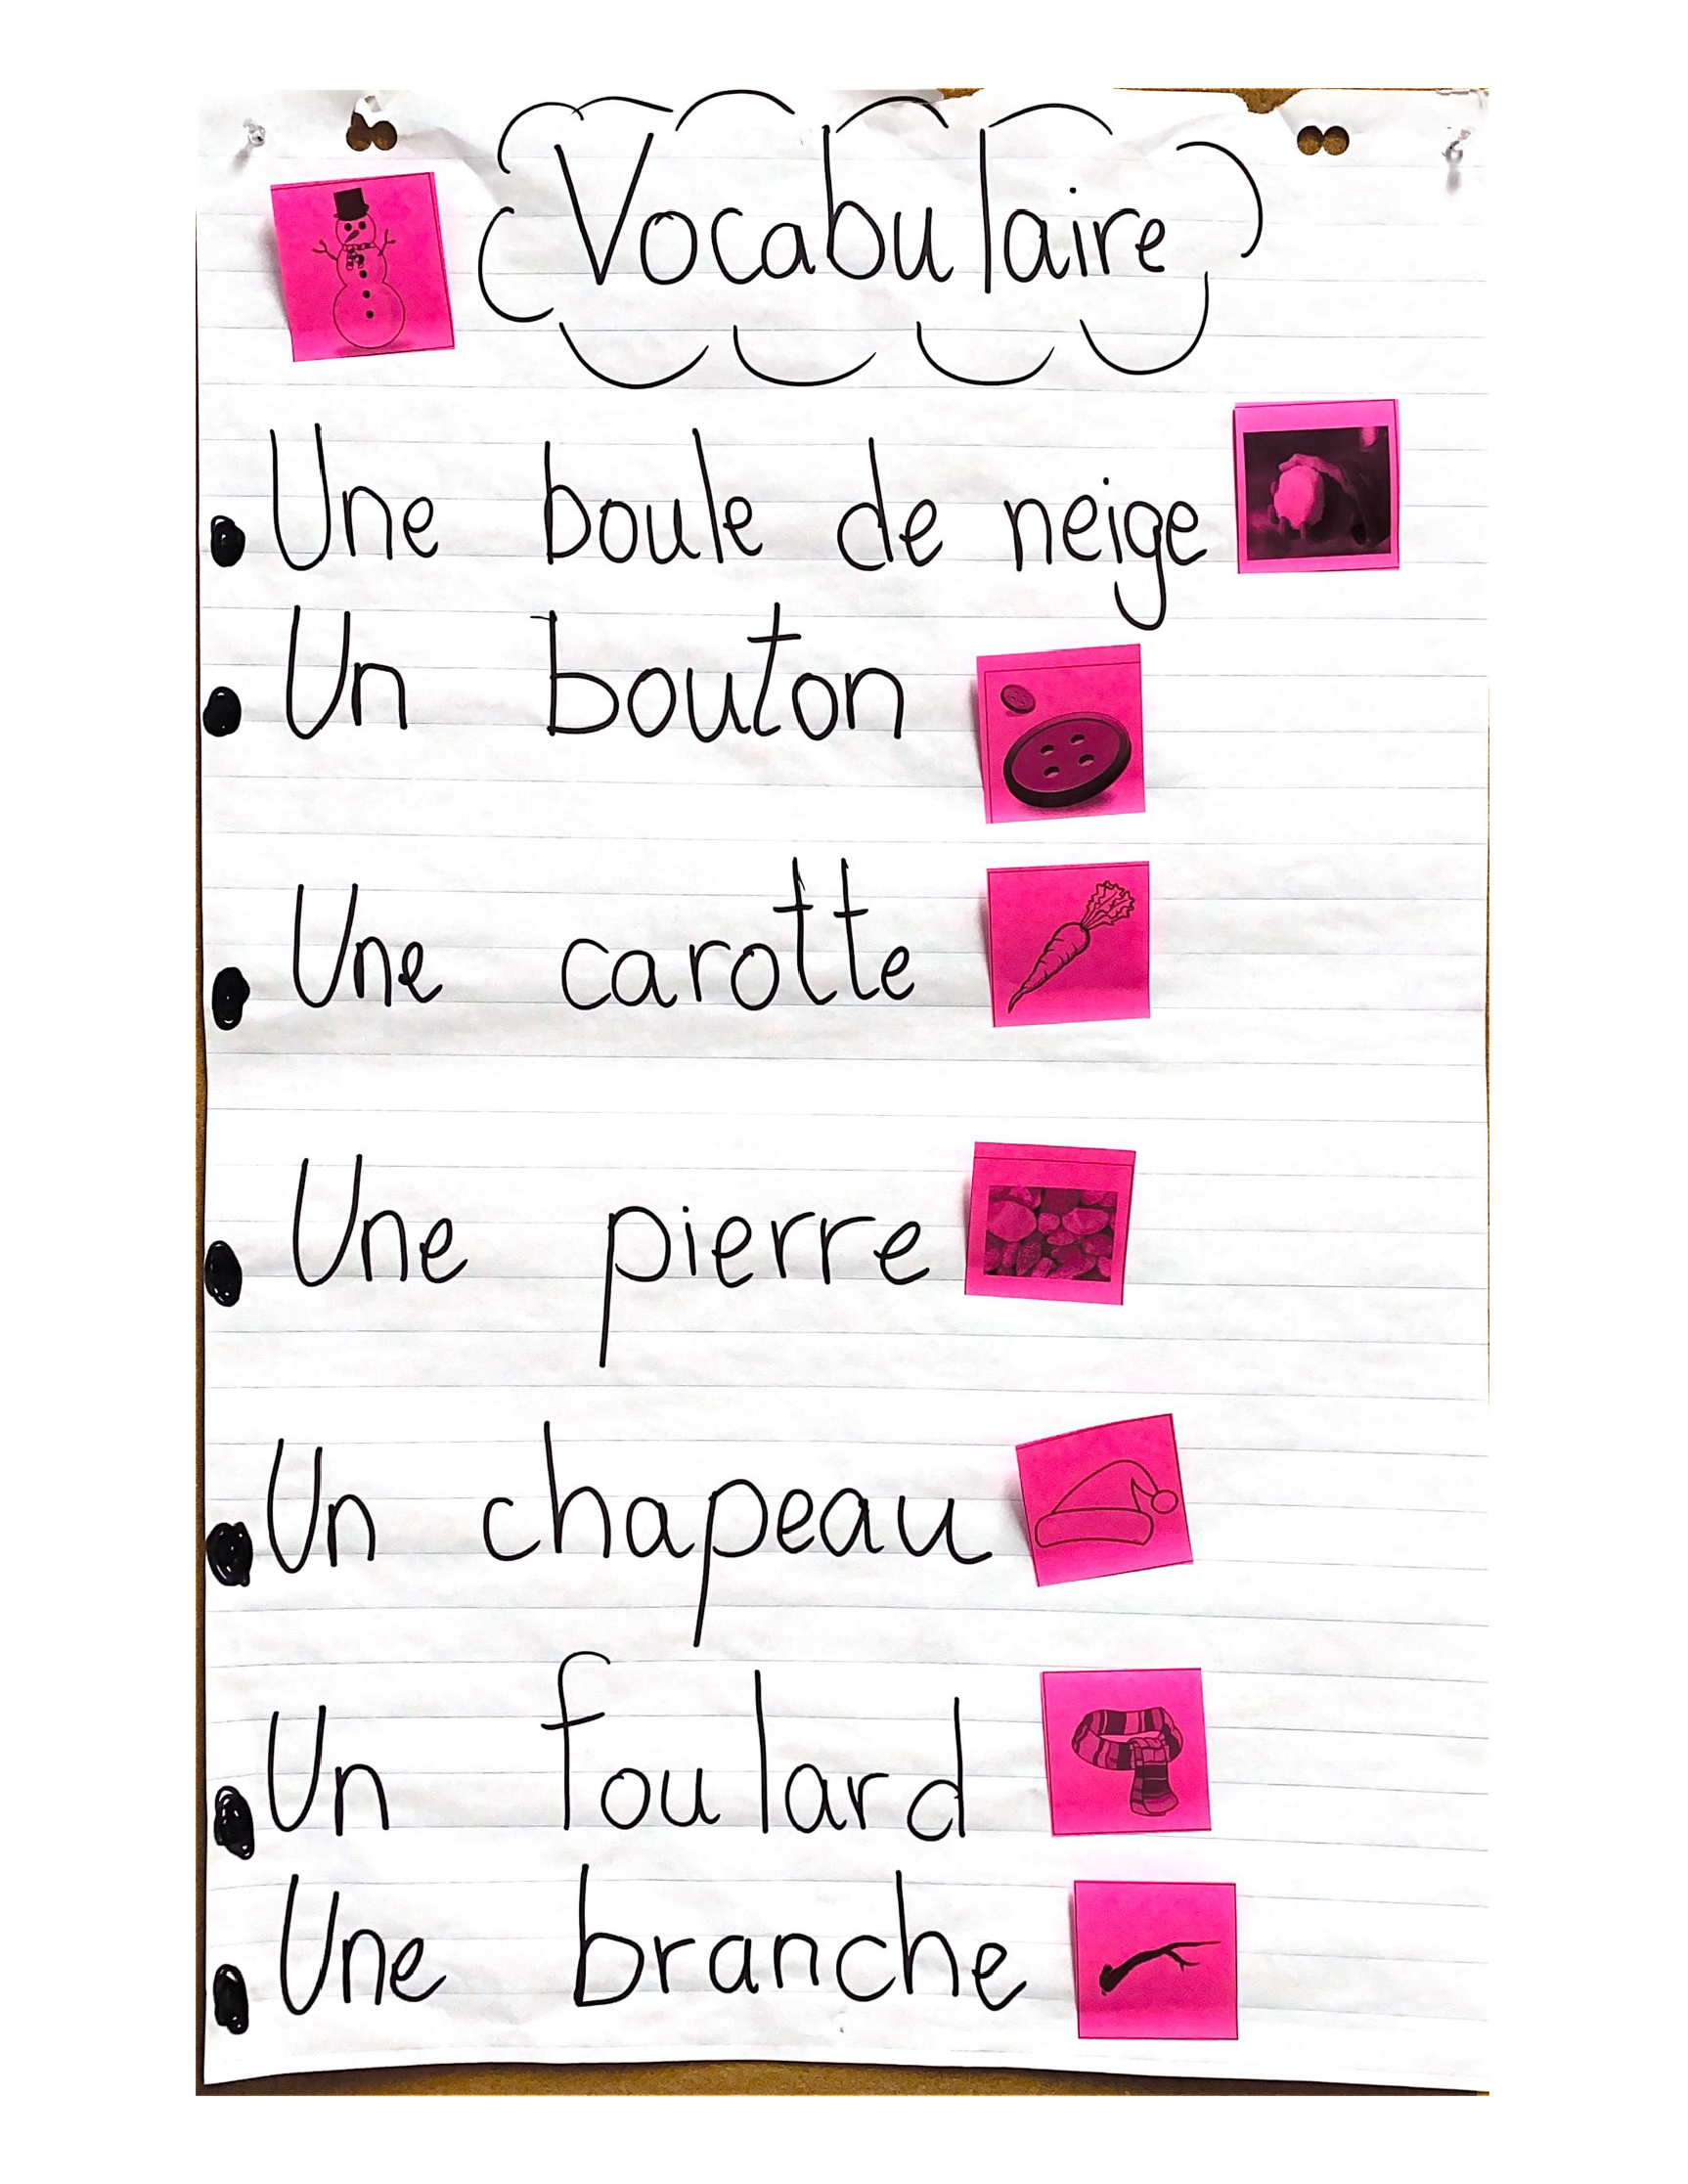 Vocabulaire
Une boule de neige
Un bouton
Une carotte
Une pierre
Un chapeau
Un foulard
Une branche